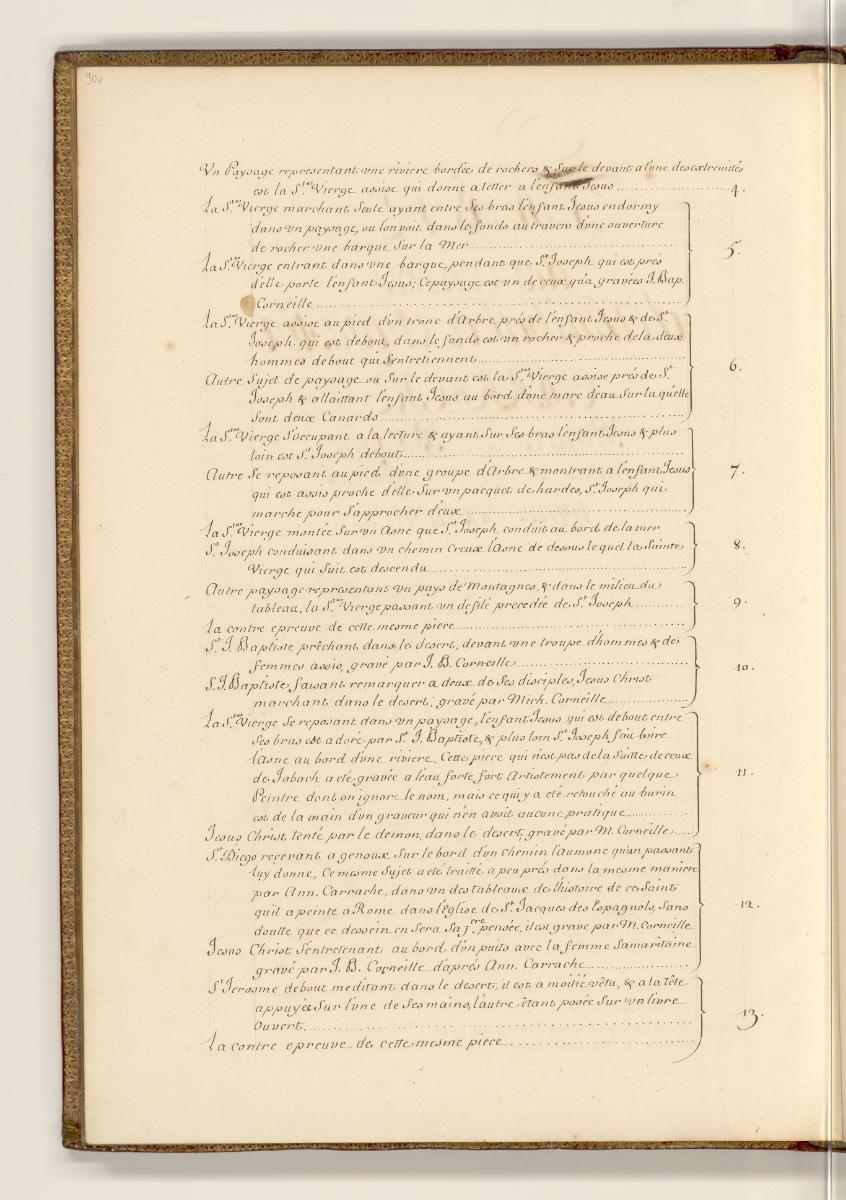 90v
Vn Paysage representant vne riviere bordée de rochers & Sur le devant a l'une des extremités
est la S.te Vierge assise qui donne a tetter a l'enfant Jesus ........ 4.
La S.te Vierge marchant Seule ayant entre Ses bras l'enfant Jesus endormy
dans vn paysage, ou l'on voit dans le fonds au travers d'une ouverture
de rocher vne barque Sur la Mer ........ 5.
La S.te Vierge entrant dans vne barque, pendant que S.t Joseph qui est prés
d'elle porte l'enfant Jesus; Ce paysage est vn de ceux qu'a gravées J. Bap.
Corneille ........
La S.te Vierge assise au pied d'vn tronc d'Arbre prés de l'enfant Jesus & de S.t
Joseph qui est debout, dans le fonds est vn rocher & proche de la deux
hommes debout qui S'entretiennent ........
6.
Autre Sujet de paysage ou Sur le devant est la S.te Vierge assise prés de S.t
Joseph & allaittant l'enfant Jesus au bord d'une mare d'eau Sur laquelle
Sont deux Canards ........
La S.te Vierge S'occupant a la lecture & ayant Sur Ses bras l'enfant Jesus & plus
loin est S.t Joseph debout ........
Autre Se reposant au pied d'vne groupe d'Arbre & montrant a l'enfant Jesus 7.
qui est assis proche d'elle Sur vn pacquet de hardes, S.t Joseph qui
marche pour S'approcher d'eux ........
La S.te Vierge montée Sur vn Asne que S.t Joseph conduit au bord de la mer
S.t Joseph conduisant dans vn chemin Creux l'Asne de dessus le quel la Sainte 8.
Vierge qui Suit est descendu ........
Autre paysage representant vn pays de Montagnes, & dans le milieu du
tableau, la S.te Vierge passant vn defilé precedée de S.t Joseph ........ 9.
La contre epreuve de cette mesme piece ........
S.t J. Baptiste prêchant dans le desert, devant vne troupe d'hommes & de
femmes assis, gravé par J. B. Corneille ........ 10.
S. J. Baptiste faisant remarquer a deux de Ses disciples, Jesus Christ
marchant dans le desert, gravé par Mich. Corneille ........
La S.te Vierge Se reposant dans vn paysage, l'enfant Jesus qui est debout entre
Ses bras est adoré par S.t J. Baptiste, & plus loin S.t Joseph fait boire
l'asne au bord d'vne riviere, Cette piece qui n'est pas de la Suitte de ceux
de Jabach a eté gravée a l'eau forte, fort Artistement par quelque 11.
Peintre dont on ignore le nom, mais ce qui y a eté retouché au burin
est de la main d'vn graveur qui n'en avoit aucune pratique ........
Jesus Christ tenté par le demon, dans le desert, gravé par M. Corneille ........
S.t Diego recevant a genoux Sur le bord d'vn chemin l'aumone qu'un passant
luy donne, Ce mesme Sujet a eté traitté a peu prés dans la mesme maniere
par Ann. Carrache, dans vn des tableaux de l'histoire de ce Saint
qu'il a peint a Rome dans l'Eglise de S.t Jacques des Espagnols, Sans 12.
doutte que ce dessein en Sera Sa j.ere pensée, il est gravé par M. Corneille
Jesus Christ S'entretenant au bord d'vn puits avec la femme Samaritaine
gravé par J. B. Corneille d'aprés Ann. Carrache ........
S.t Jerosme debout meditant dans le desert, il est a moitié vêtu, & a la tête
appuyée Sur l'une de Ses mains, l'autre êtant posée Sur vn livre 13.
Ouvert ........
La contre epreuve de cette mesme piece ........